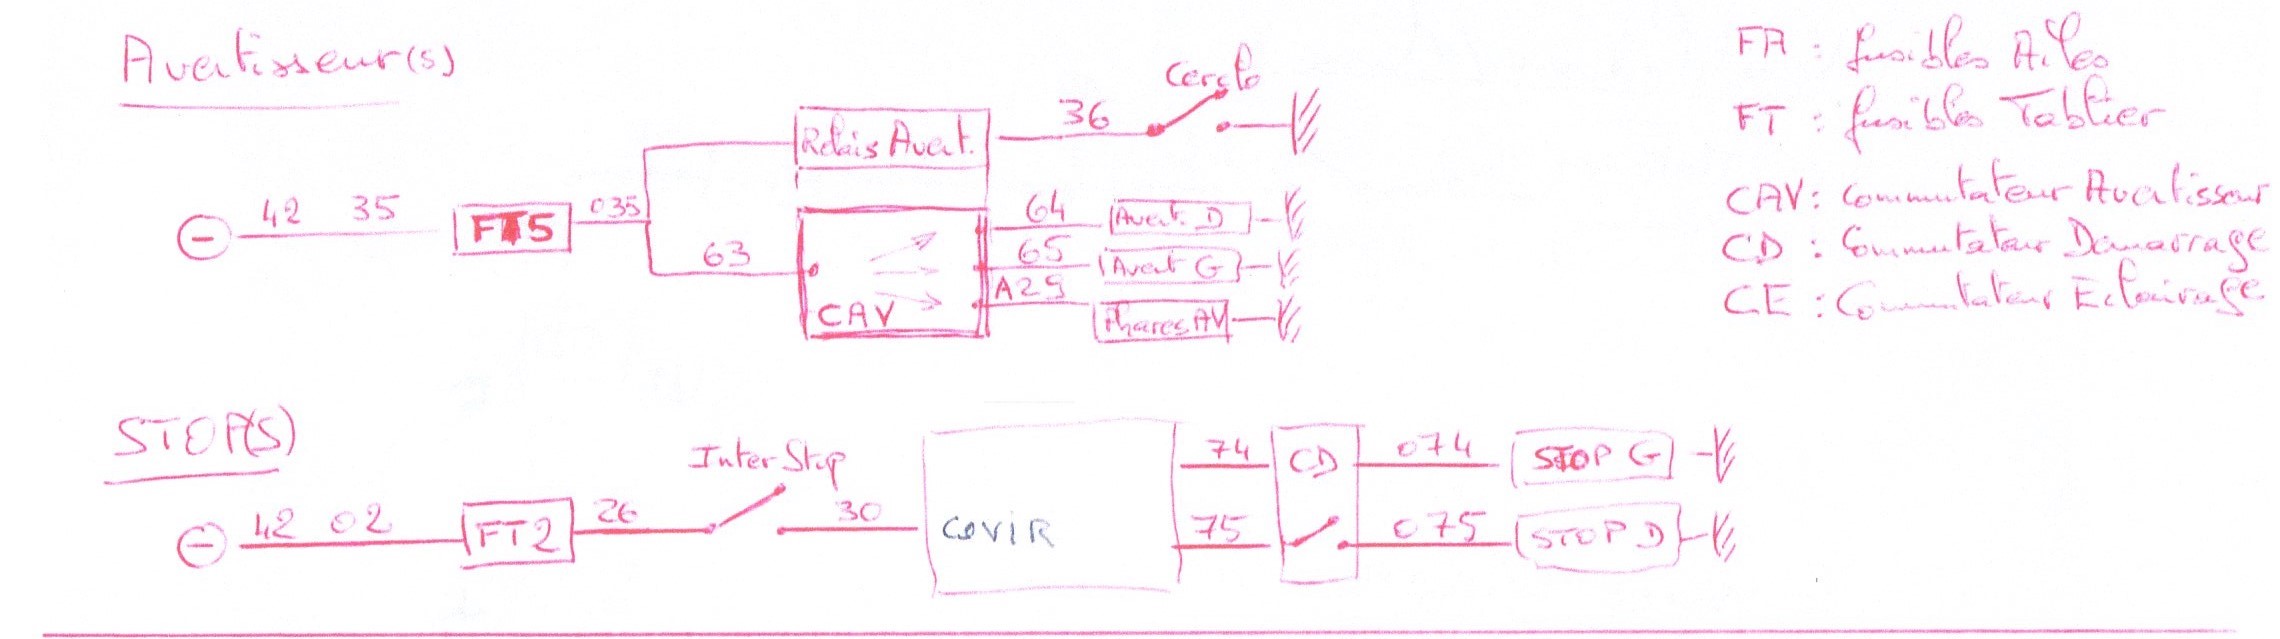 Avertisseur(s)
Cercle
Relais Avert.
36
42 35
FT5
035
63
CAV
64
Avert. D
65
Avert G
A29
Phares AV
FA : fusibles Ailes
FT : fusibles Tablier
CAV : Commutateur Avertisseur
CD : Commutateur Demarrage
CE : Commutateur Eclairage
STOP(S)
Inter Stop
42 02
FT2
26
30
COVIR
74
CD
074
STOP G
75
075
STOP D